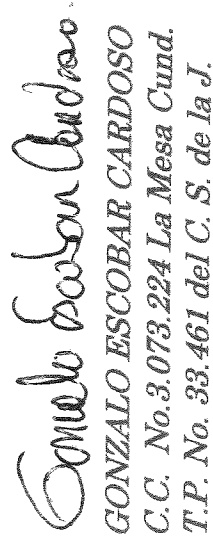 Gonzalo Escobar Cardoso
GONZALO ESCOBAR CARDOSO
C.C. No.3.073.224 La Mesa Cund.
T.P. No. 33.461 del C. S. de la J.